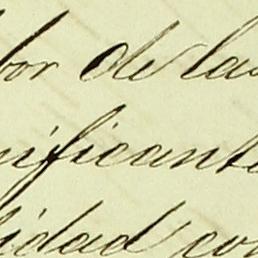 bor de las
nificante
lidad con